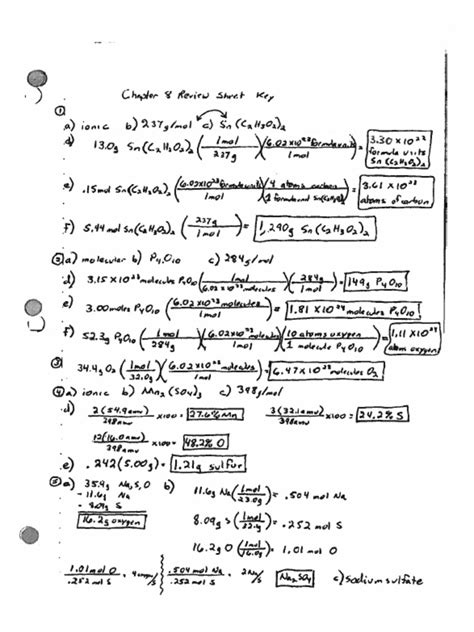 Chapter 8 Review Sheet Key
① a) ionic b) 237g/mol c) Sn(C₂H₃O₂)₂
d) 13.0g Sn(C₂H₃O₂)₂ (1mol/237g)(6.02x10²³ formula units/1mol) = 3.30 x 10²² formula units Sn(C₂H₃O₂)₂
e) .15mol Sn(C₂H₃O₂)₂ (6.02x10²³ formula units/1mol)(4 atoms carbon/1 formula unit Sn(C₂H₃O₂)₂) = 3.61 x 10²³ atoms of carbon
f) 5.44 mol Sn(C₂H₃O₂)₂ (237g/1mol) = 1,290g Sn(C₂H₃O₂)₂
② a) molecular b) P₄O₁₀ c) 284g/mol
d) 3.15 x 10²³ molecules P₄O₁₀ (1mol/6.02 x 10²³ molecules)(284g/1mol) = 149g P₄O₁₀
e) 3.00 moles P₄O₁₀ (6.02 x 10²³ molecules/1mol) = 1.81 x 10²⁴ molecules P₄O₁₀
f) 52.3g P₄O₁₀ (1mol/284g)(6.02x10²³ molecules/1mol)(10 atoms oxygen/1 molecule P₄O₁₀) = 1.11 x 10²⁴ atom oxygen
③ 34.4g O₂ (1mol/32.0g)(6.02 x 10²³ molecules/1mol) = 6.47 x 10²³ molecules O₂
④ a) ionic b) Mn₂(SO₄)₃ c) 398g/mol
d) 2(54.9amu)/398amu x100 = 27.6% Mn 3(32.1amu)/398amu x100 = 24.2% S
12(16.0amu)/398amu x100 = 48.2% O
e) .242(5.00g) = 1.21g sulfur
⑤ a) 35.9g Na,S,O b) 11.6g Na(1mol/23.0g) = .504 mol Na
- 11.6g Na
- 8.09g S 8.09g S(1mol/32.1g) = .252 mol S
16.2g oxygen
16.2g O(1mol/16.0g) = 1.01 mol O
1.01 mol O/.252 mol S = .504 mol Na/.252 mol S = 2 Na/S Na₂SO₄ c) sodium sulfate